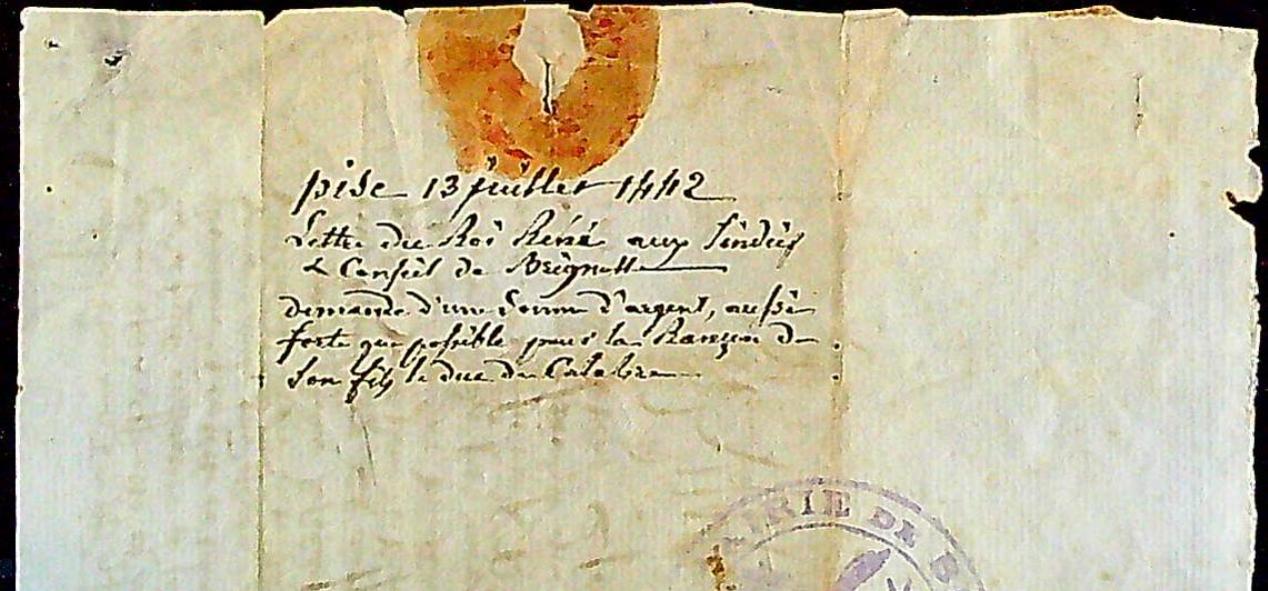 pise 13 juillet 1442
Lettre du Roi Réné aux sindics
& Conseil de Brignolle
demande d'une somme d'argent, aussi
forte que possible pour la Rançon de
son fils le duc de Calabre
MAIRIE DE B